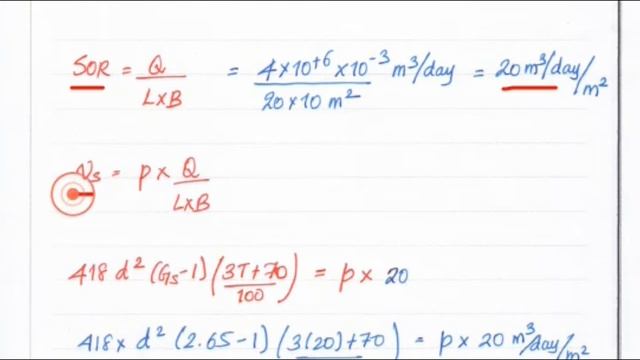 SOR = Q / L×B = 4×10⁺⁶ ×10⁻³ m³/day / 20×10 m² = 20 m³/day/m²
Vs = p × Q / L×B
418 d² (Gs-1) (3T+70 / 100) = p × 20
418 × d² (2.65-1) (3(20)+70) = p × 20 m³/day/m²